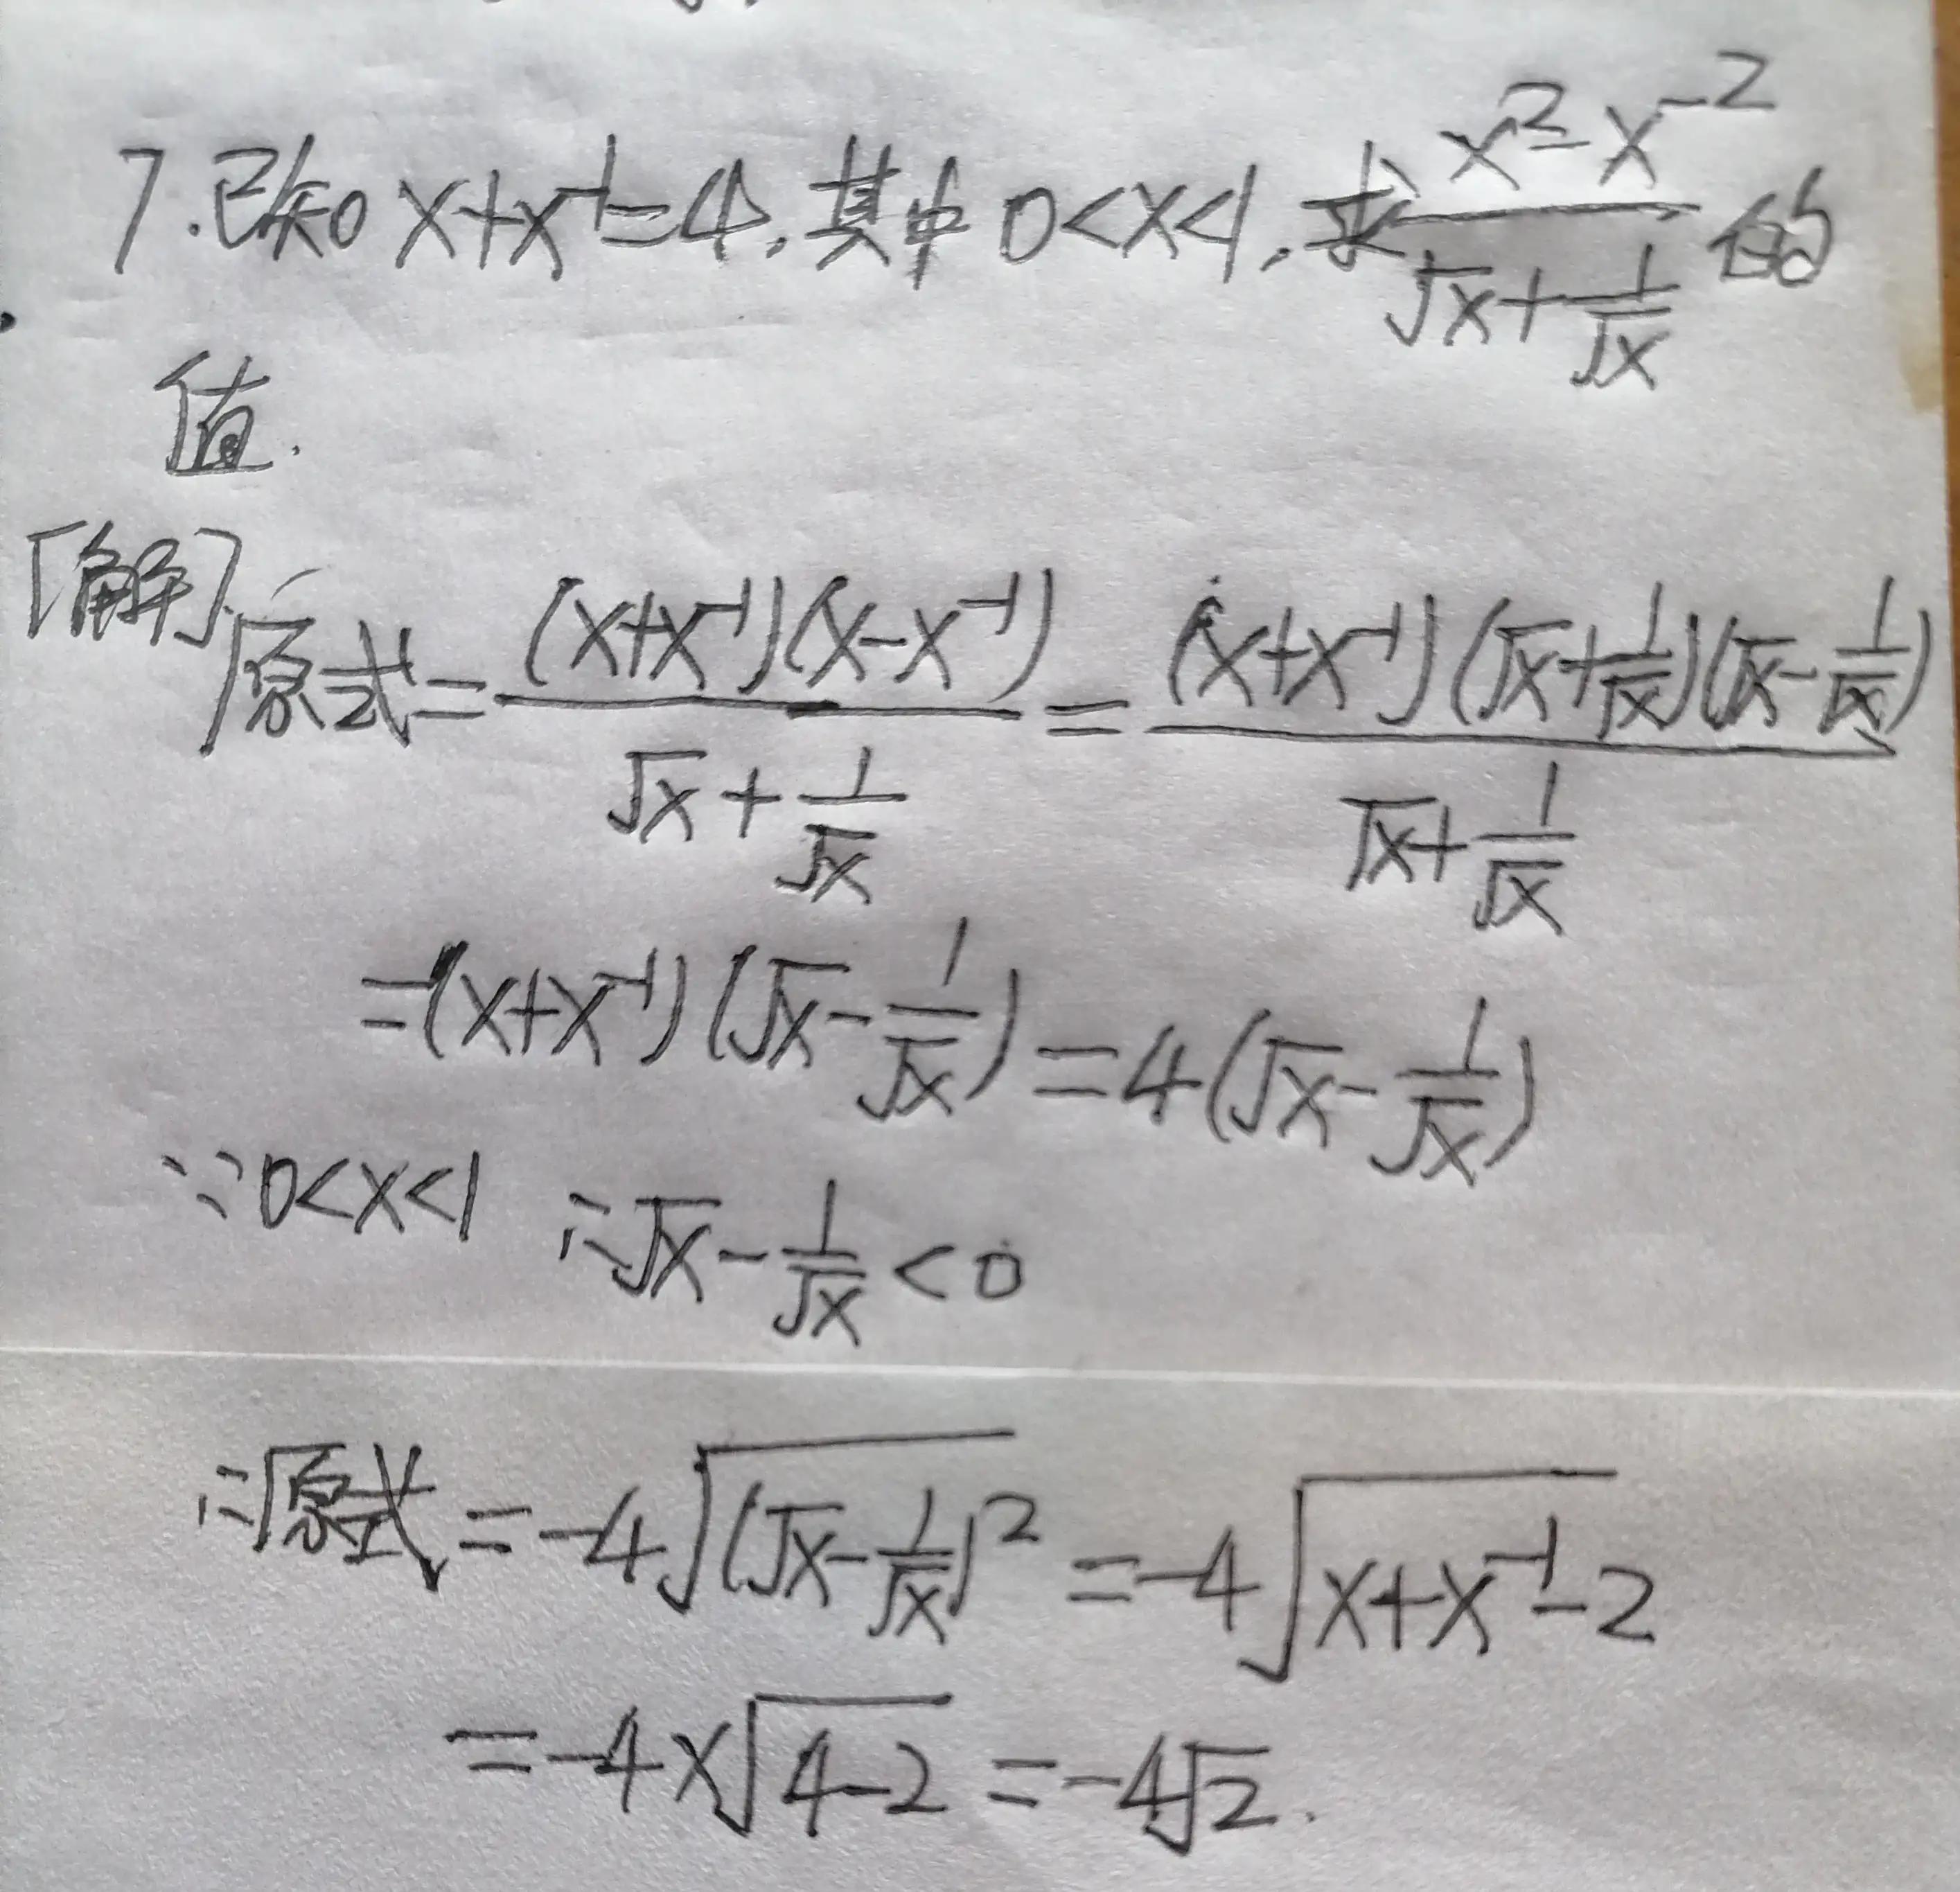 7.已知x+x⁻¹=4,其中0<x<1,求(x²-x⁻²)/(√x+1/√x)的
值.
[解]原式=(x+x⁻¹)(x-x⁻¹)/(√x+1/√x)=(x+x⁻¹)(√x+1/√x)(√x-1/√x)/(√x+1/√x)
=(x+x⁻¹)(√x-1/√x)=4(√x-1/√x)
∵0<x<1 ∴√x-1/√x<0
∴原式=-4√((√x-1/√x)²)=-4√(x+x⁻¹-2)
=-4×√(4-2)=-4√2.